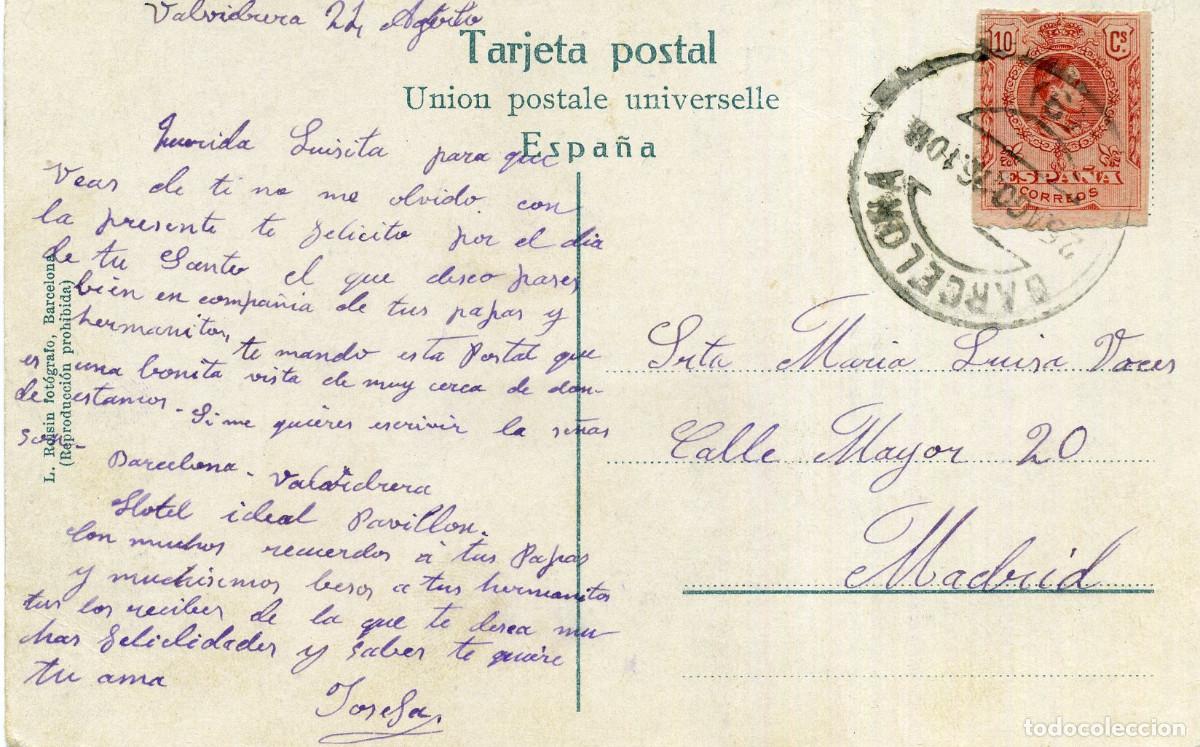 Valvidrera 22 Agosto
Tarjeta postal
Union postale universelle
España
Querida Luisita para que
Veas de ti no me olvido con
la presente te felicito por el dia
de tu Santo el que deseo pases
bien en compañia de tus papas y
hermanitos, te mando esta Postal que
es una bonita vista de muy cerca de don-
de estamos - Si me quieres escrivir la señas
son -
Barcelona - Valvidrera
Hotel ideal Pavillon.
Con muchos recuerdos á tus Papas
y muchisimos besos a tus hermanitos
tus los recibes de la que te desea mu
chas felicidades y saber te quiere
tu ama
Josefa
L. Roisin fotógrafo, Barcelona
(Reproducción prohibida)
10 Cs.
ESPAÑA
CORREOS
BARCELONA
Srta Maria Luisa Voces
Calle Mayor 20
Madrid
todocoleccion